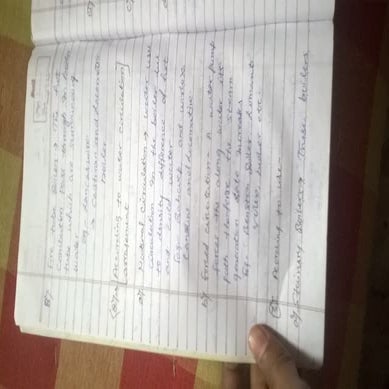 B) Fire tube Boiler → The hot
combustion Pass through the
tube which are surrounding
water
eg → Lancashire
Cochran and Locomotive
Boiler
(2) → According to water circulation
arrangement
a) Natural circulation → water
circulation in the boiler due
to density difference of hot
and cold water
eg → Babcock and wilcox
cochran and locomotive
b) Forced circulation - A water pump
forces the along water its
path therefore the steam
generation rate increases
Eg: Benson Boiler, Lamont
velox boiler etc.
(3) → According to use -
a) Stationary Boilers → These boilers